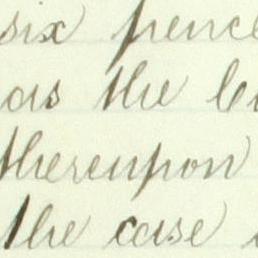 six pence
as the
thereupon
the case